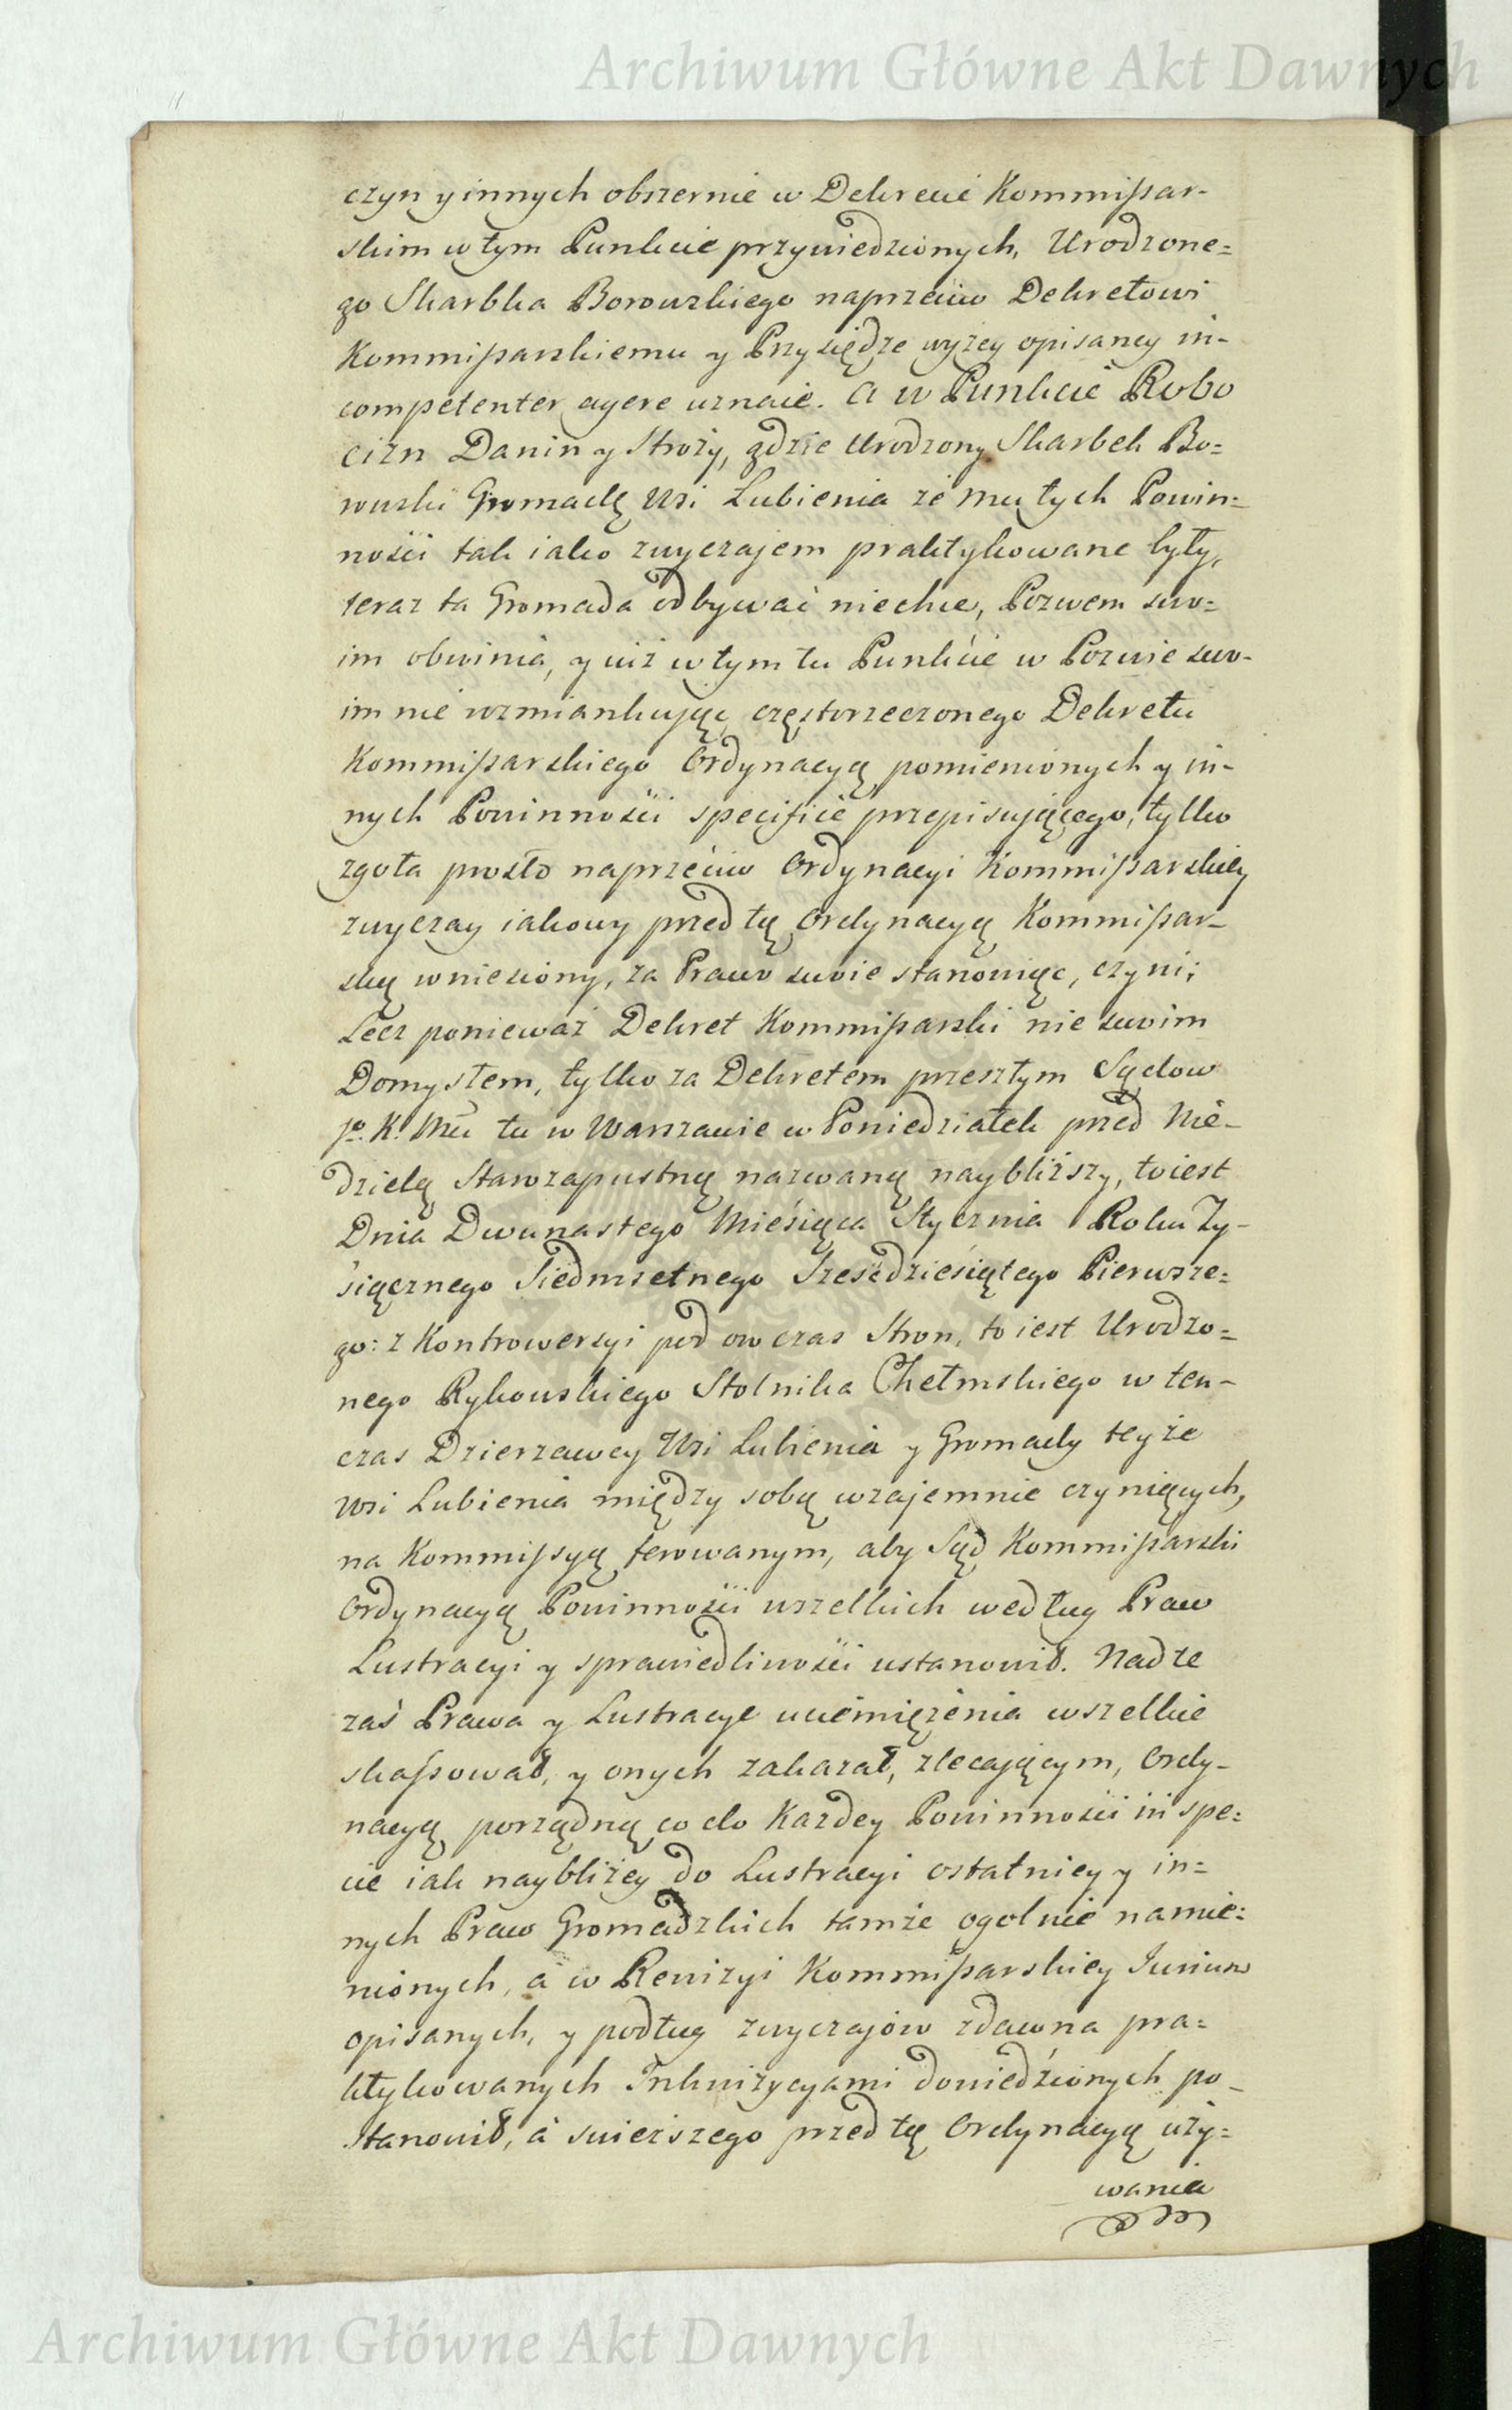 Archiwum Główne Akt Dawnych
czyn y innych obszernie w Dekrecie Kommissar-
skim w tym Punkcie przywiedzionych, Urodzone=
go Skarbka Borowskiego naprzeciw Dekretowi
Kommissarskiemu y Przysiędze wyżey opisaney in-
competenter agere uznaie. A w Punkcie Robo
cizn Danin y Stroży, gdzie Urodzony Skarbek Bo=
rowski Gromadę Wsi Lubienia że mu tych Powin=
ności tak iako zwyczajem praktykowane były,
teraz ta Gromada odbywać niechce, Pozwem swo=
im obwinia, y iuż w tym tu Punkcie w Pozwie swo-
im nie wzmiankując częstorzeczonego Dekretu
Kommissarskiego Ordynacyą pomienionych y in-
nych Powinności specifice przepisującego, tylko
zgoła prosto naprzeciw Ordynacyi Kommissarskiey
zwyczay iakowy przed tą Ordynacyą Kommissar-
ską wniesiony, za Prawo swoie stanowiąc, czyni;
Lecz ponieważ Dekret Kommissarski nie swoim
Domysłem, tylko za Dekretem przeszłym Sądow
J. K. Mci tu w Warszawie w Poniedziałek przed Nie-
dzielą Starozapustną nazwaną naybliższy, to iest
Dnia Dwunastego Miesiąca Stycznia Roku Ty-
siącznego Siedmsetnego Sześćdziesiątego Pierwsze=
go: z Kontrowersyi pod ow czas Stron, to iest Urodzo=
nego Rykowskiego Stolnika Chełmskiego w ten-
czas Dzierzawcy Wsi Lubienia y Gromady teyże
Wsi Lubienia między sobą wzajemnie czyniących,
na Kommissyą ferowanym, aby Sąd Kommissarski
Ordynacyą Powinności wszelkich według Praw
Lustracyi y sprawiedliwości ustanowił. Nad te
zaś Prawa y Lustracye uciemiężenia wszelkie
skassował, y onych zakazał, zlecającym, Ordy-
nacyą porządną co do Kazdey Powinności in spe=
cie iak naybliżey do Lustracyi ostatniey y in=
nych Praw Gromadzkich tamże ogolnie namie=
nionych, a w Rewizyi Kommissarskiey Iurium
opisanych, y podług zwyczajow zdawna pra=
ktykowanych Inkwizycyami dowiedzionych po-
stanowił, a swieższego przed tą Ordynacyą uży=
wania
Archiwum Główne Akt Dawnych